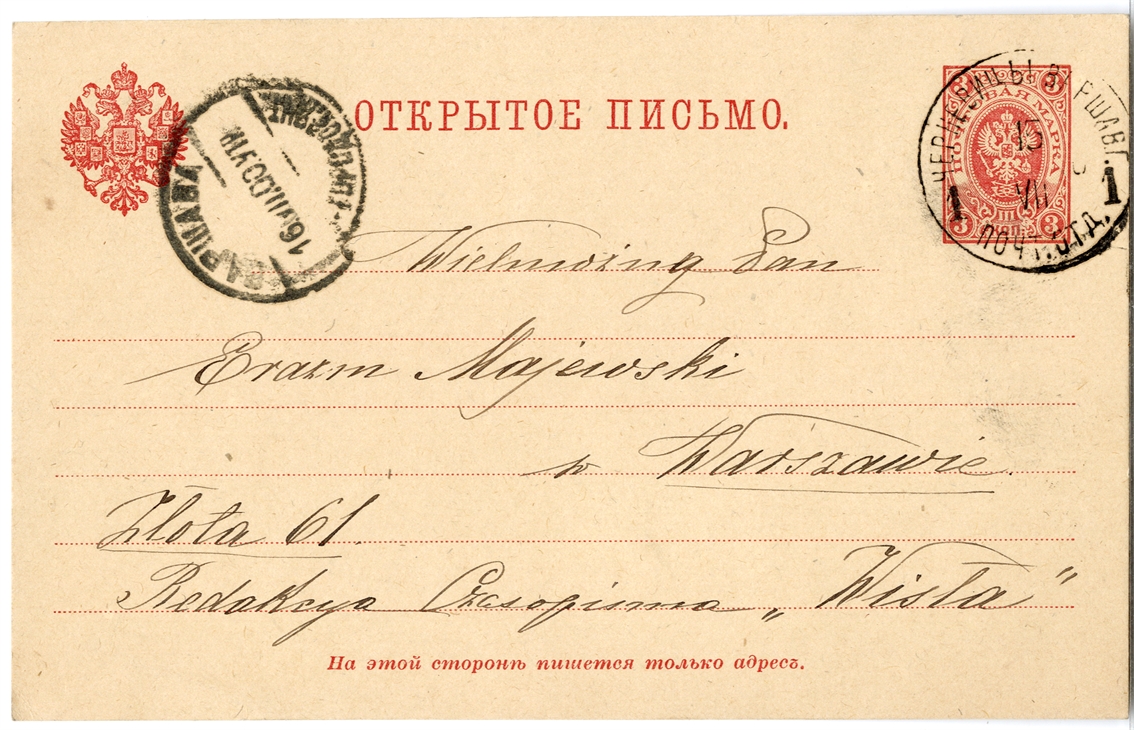 ОТКРЫТОЕ ПИСЬМО.
ПОЧТОВАЯ МАРКА
3 3
3 КОП. 3
ВАРШАВА
16 VII 00
15
VII
1 ПОЧТ. ОТД. 1
Wielmożny Pan
Erazm Majewski
w Warszawie.
Złota 61.
Redakcya Czasopisma „Wisła"
На этой сторонѣ пишется только адресъ.